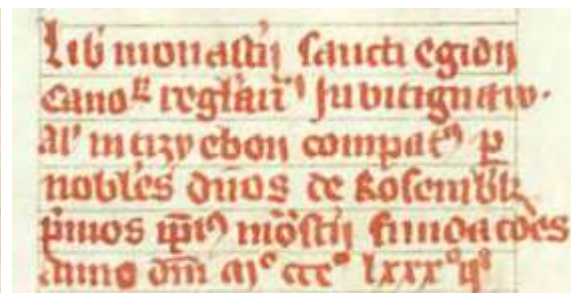 Lib monastij sancti egidij
canoꝝ reglariũ ĩ witignaw.
al' in trzyebon compatꝰ p
nobles dnos de Rosemb'k
p̃mos ip̃iꝰ mõstij fundatões
anno dm̃ mº cccº lxxxº ijº